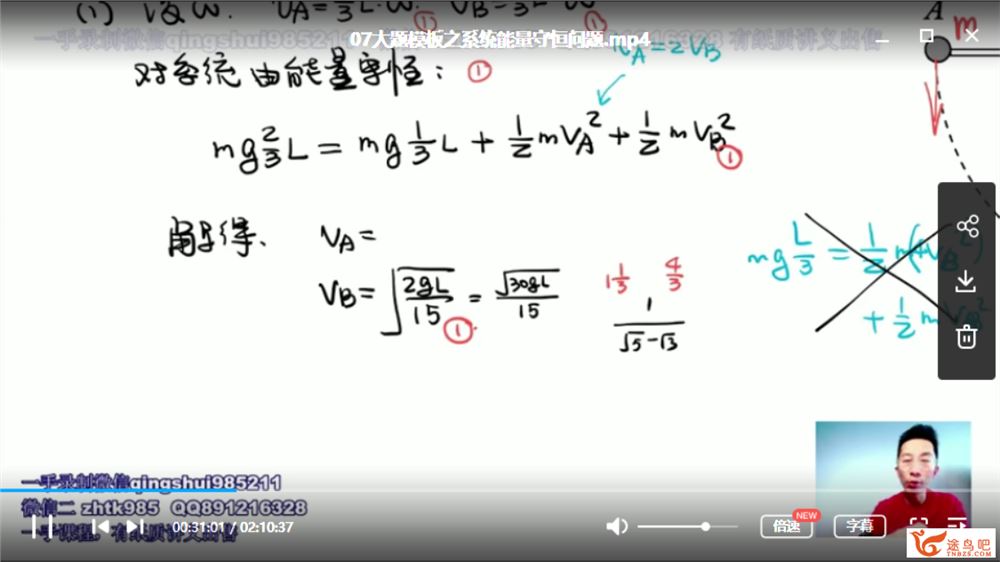 (1) 设ω. VA=2/3 L·ω. VB=1/3 L·ω ①
一手录制微信qingshui985211
07大题模板之系统能量守恒问题.mp4
有纸质讲义出售
A m
VA=2VB
对系统由能量守恒: ①
mg 2/3 L = mg 1/3 L + 1/2 mVA² + 1/2 mVB² ①
解得. VA=
VB= √(2gL/15) = √30gL/15 ①
1 1/3 4/3
1/(√5-√3)
mg L/3 = 1/2 m(
+ 1/2 m
一手录制微信qingshui985211
微信二 zhtk985 QQ891216328
一手课程,有纸质讲义出售
00:31:01 / 02:10:37
倍速 NEW
字幕
途鸟吧
TNBZS.COM